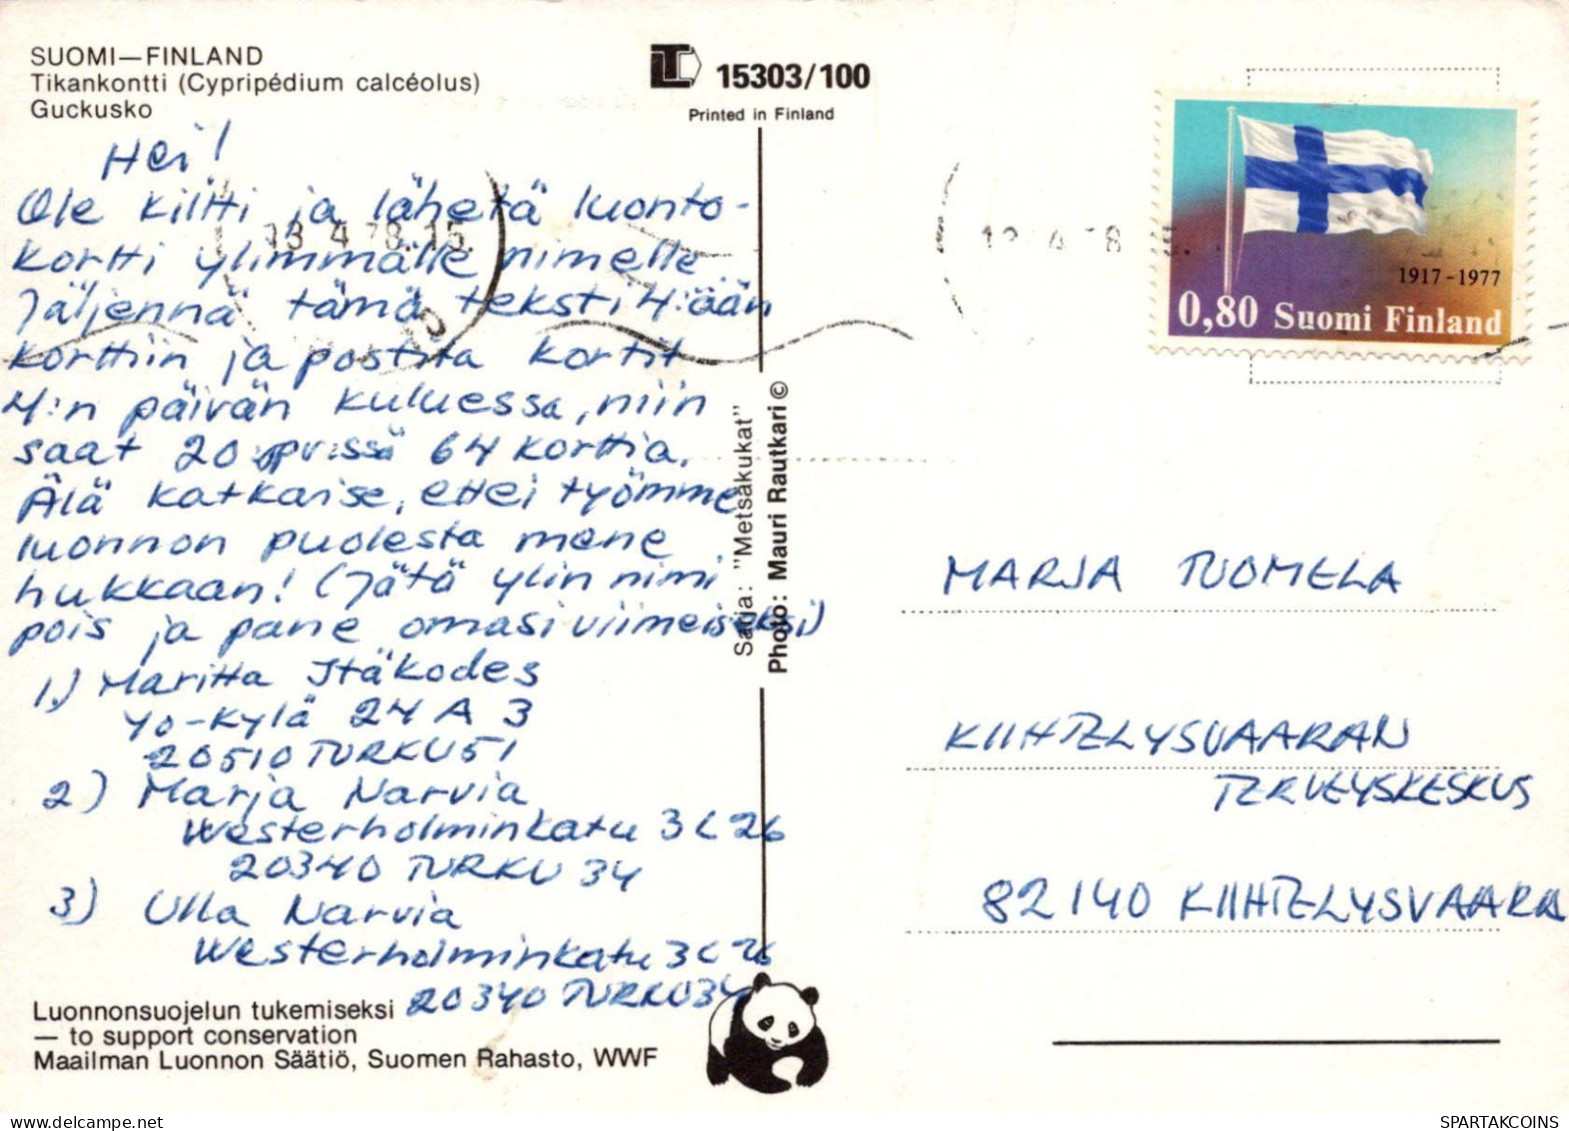 SUOMI—FINLAND
Tikankontti (Cypripédium calcéolus)
Guckusko
LTC 15303/100
Printed in Finland
Hei!
Ole kiltti ja lähetä luonto-
kortti ylimmälle nimelle
Jäljennä tämä teksti 4:ään
korttiin ja postita kortit
4:n päivän kuluessa, niin
saat 20 pv:ssä 64 korttia.
Älä katkaise, ettei työmme
luonnon puolesta mene
hukkaan! (Jätä ylin nimi
pois ja pane omasi viimeiseksi)
1.) Maritta Itäkodes
Yo-kylä 24 A 3
20510 TURKU 51
2) Marja Narvia
Westerholminkatu 3 C 26
20340 TURKU 34
3) Ulla Narvia
Westerholminkatu 3 C 26
20340 TURKU 34
Luonnonsuojelun tukemiseksi
— to support conservation
Maailman Luonnon Säätiö, Suomen Rahasto, WWF
Sarja: "Metsäkukat"
Photo: Mauri Rautkari ©
13.4.78.15
1917-1977
0,80 Suomi Finland
MARJA TUOMELA
KIIHTELYSVAARAN
TERVEYSKESKUS
82140 KIIHTELYSVAARA
SPARTAKCOINS